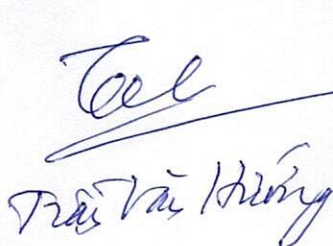 Trần Văn Hướng